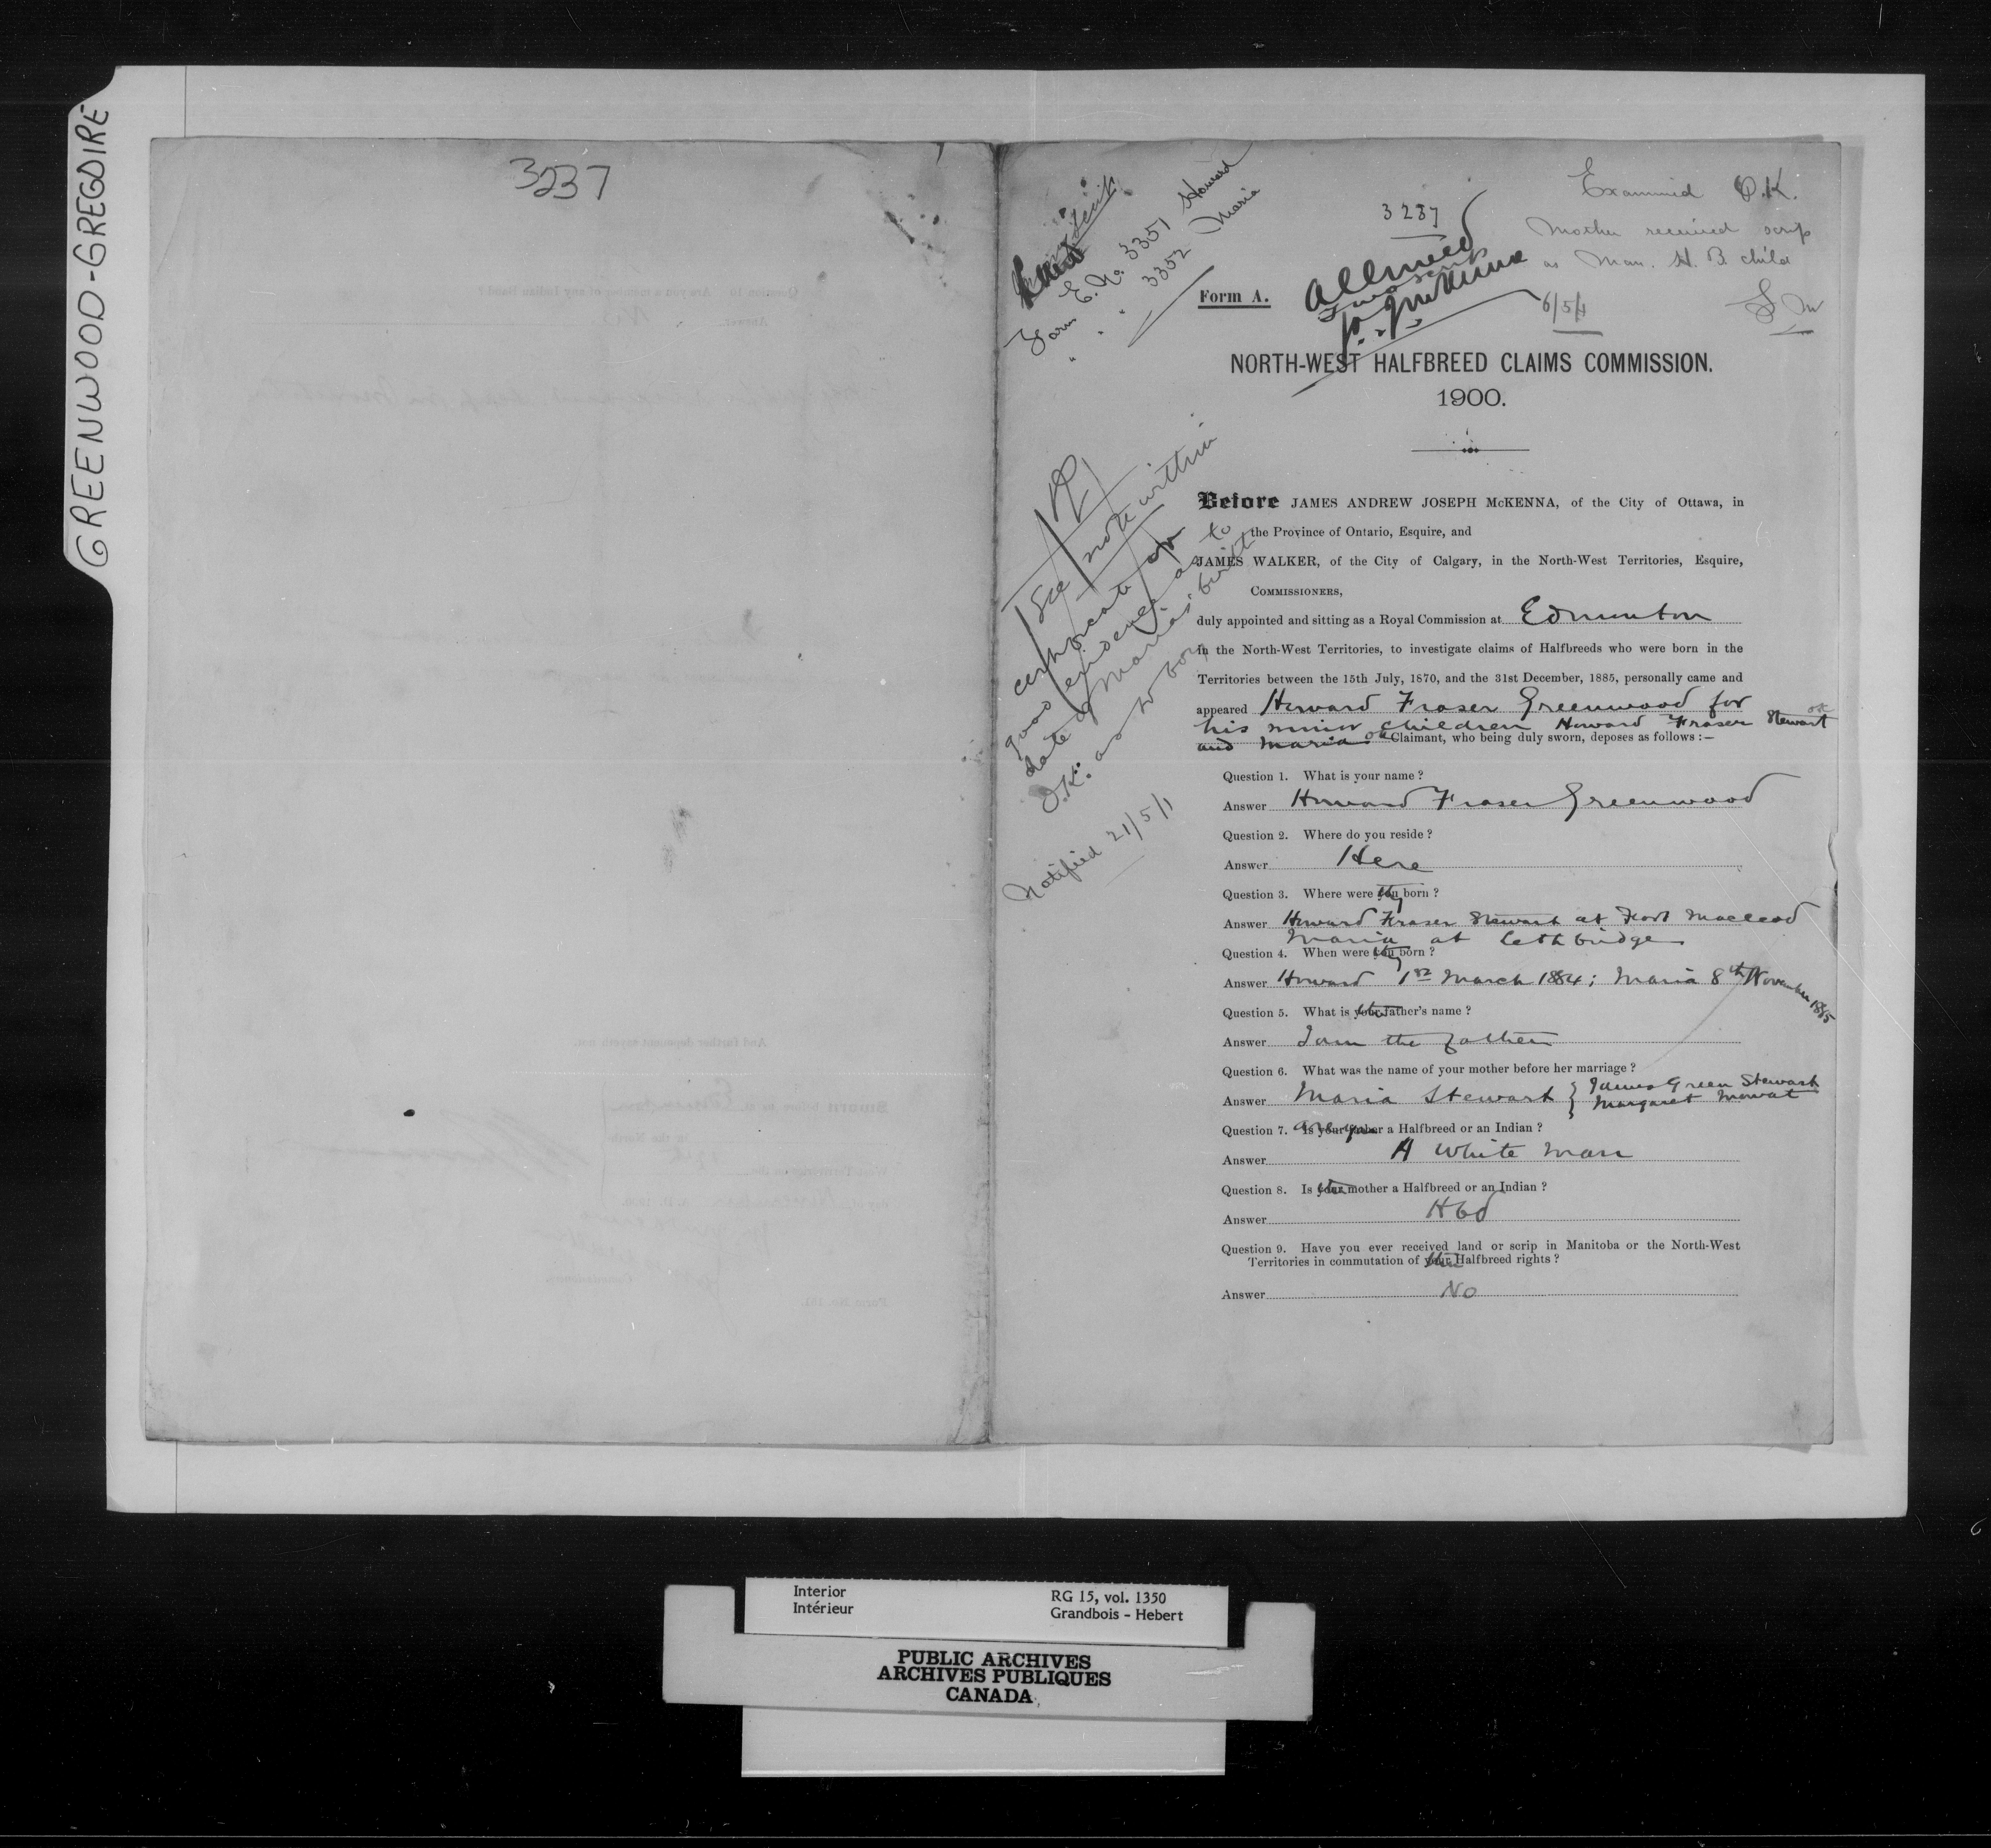 GREENWOOD-GREGOIRE
3237
Form E. No. 3351 Howard
" " " 3352 Maria
3237
Allowed
Two scrips
J.A.J. McKenna
Examined O.K.
Mother received scrip
as Man. H. B child
6/5/1
Form A.
NORTH-WEST HALFBREED CLAIMS COMMISSION.
1900.
See note within
certificate of
good evidence as to
date of Maria's birth
O.K. as to boy
Notified 21/5/1
Before JAMES ANDREW JOSEPH McKENNA, of the City of Ottawa, in
the Province of Ontario, Esquire, and
JAMES WALKER, of the City of Calgary, in the North-West Territories, Esquire,
COMMISSIONERS,
duly appointed and sitting as a Royal Commission at Edmonton
in the North-West Territories, to investigate claims of Halfbreeds who were born in the
Territories between the 15th July, 1870, and the 31st December, 1885, personally came and
appeared Howard Fraser Greenwood for
his minor children Howard Fraser Stewart ok
and Maria ok Claimant, who being duly sworn, deposes as follows :—
Question 1. What is your name ?
Answer Howard Fraser Greenwood
Question 2. Where do you reside ?
Answer Here
Question 3. Where were they born ?
Answer Howard Fraser Stewart at Fort Macleod
Maria at Lethbridge
Question 4. When were they born ?
Answer Howard 1st March 1884; Maria 8th November 1885
Question 5. What is their father's name ?
Answer I am the father
Question 6. What was the name of your mother before her marriage ?
Answer Maria Stewart } James Green Stewart
} Margaret Mowat
Question 7. Are you a Halfbreed or an Indian ?
Answer A White Man
Question 8. Is their mother a Halfbreed or an Indian ?
Answer Hbd
Question 9. Have you ever received land or scrip in Manitoba or the North-West
Territories in commutation of their Halfbreed rights ?
Answer No
Interior
Intérieur
RG 15, vol. 1350
Grandbois - Hebert
PUBLIC ARCHIVES
ARCHIVES PUBLIQUES
CANADA